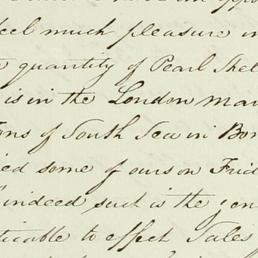 feel much pleasure in
quantity of Pearl Shel
is in the London Mar
ons of South Sea in Bon
ed some of ours on Frid
indeed such is the gen
ticable to effect Sales